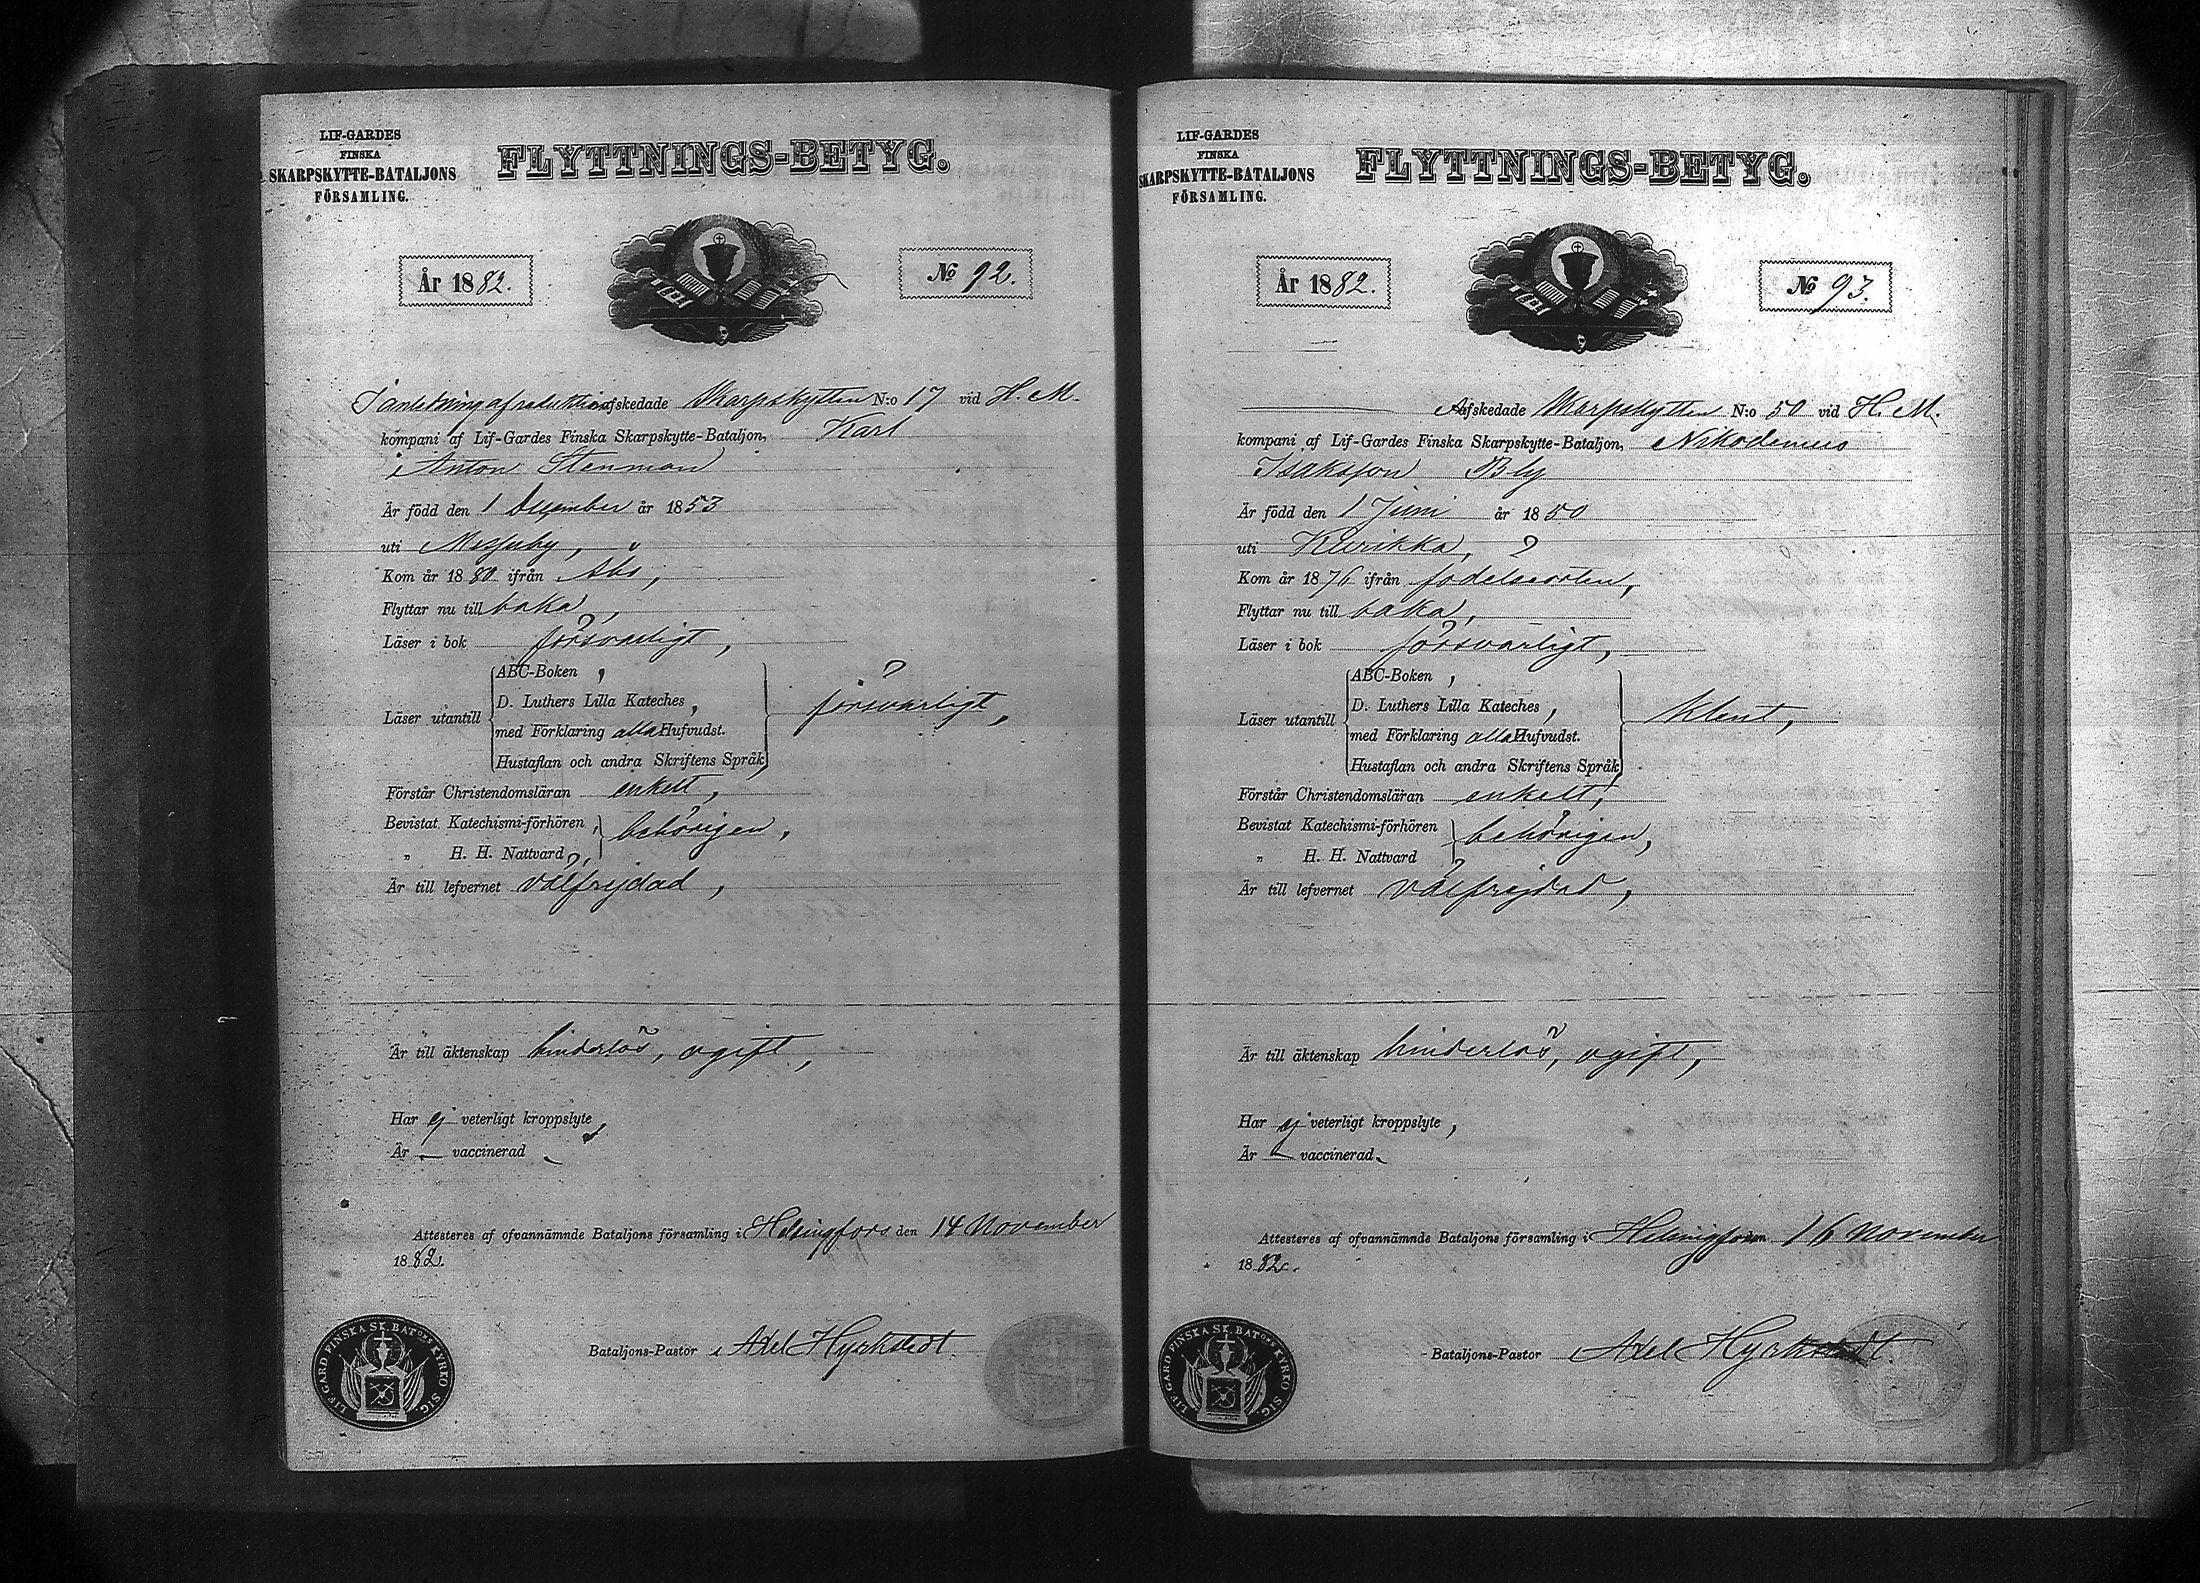 LIF-GARDES
FINSKA
SKARPSKYTTE-BATALJONS
FÖRSAMLING.
FLYTTNINGS-BETYG.
År 1882.
No 92.
I anledning af reduktion afskedade Skarpskytten N:o 17 vid H. M.
kompani af Lif-Gardes Finska Skarpskytte-Bataljon, Karl
Anton Stenman
Är född den 1 December år 1853
uti Messuby,
Kom år 1880 ifrån Åbo,
Flyttar nu till baka,
Läser i bok försvarligt,
Läser utantill
ABC-Boken,
D. Luthers Lilla Kateches,
med Förklaring alla Hufvudst.
Hustaflan och andra Skriftens Språk,
försvarligt,
Förstår Christendomsläran enkelt,
Bevistat Katechismi-förhören,
„ H. H. Nattvard,
behörigen,
Är till lefvernet välfrejdad,
Är till äktenskap hinderlös, ogift,
Har ej veterligt kroppslyte,
Är — vaccinerad.
Attesteres af ofvannämnde Bataljons församling i Helsingfors den 14 November
1882.
Bataljons-Pastor Axel Hyrkstedt.
LIF GARD FINSKA SK. BATONS KYRKO SIG.
LIF-GARDES
FINSKA
SKARPSKYTTE-BATALJONS
FÖRSAMLING.
FLYTTNINGS-BETYG.
År 1882.
No 93.
Afskedade Skarpskytten N:o 50 vid H. M.
kompani af Lif-Gardes Finska Skarpskytte-Bataljon, Nikodemus
Isaksson Bly
Är född den 1 Juni år 1850
uti Kurikka,
Kom år 1876 ifrån födelseorten,
Flyttar nu till baka,
Läser i bok försvarligt,
Läser utantill
ABC-Boken,
D. Luthers Lilla Kateches,
med Förklaring alla Hufvudst.
Hustaflan och andra Skriftens Språk,
klent,
Förstår Christendomsläran enkelt,
Bevistat Katechismi-förhören
„ H. H. Nattvard
behörigen,
Är till lefvernet välfrejdad,
Är till äktenskap hinderlös, ogift,
Har ej veterligt kroppslyte,
Är — vaccinerad.
Attesteres af ofvannämnde Bataljons församling i Helsingfors den 16 November
1882.
Bataljons-Pastor Axel Hyrkstedt.
LIF GARD FINSKA SK. BATONS KYRKO SIG.